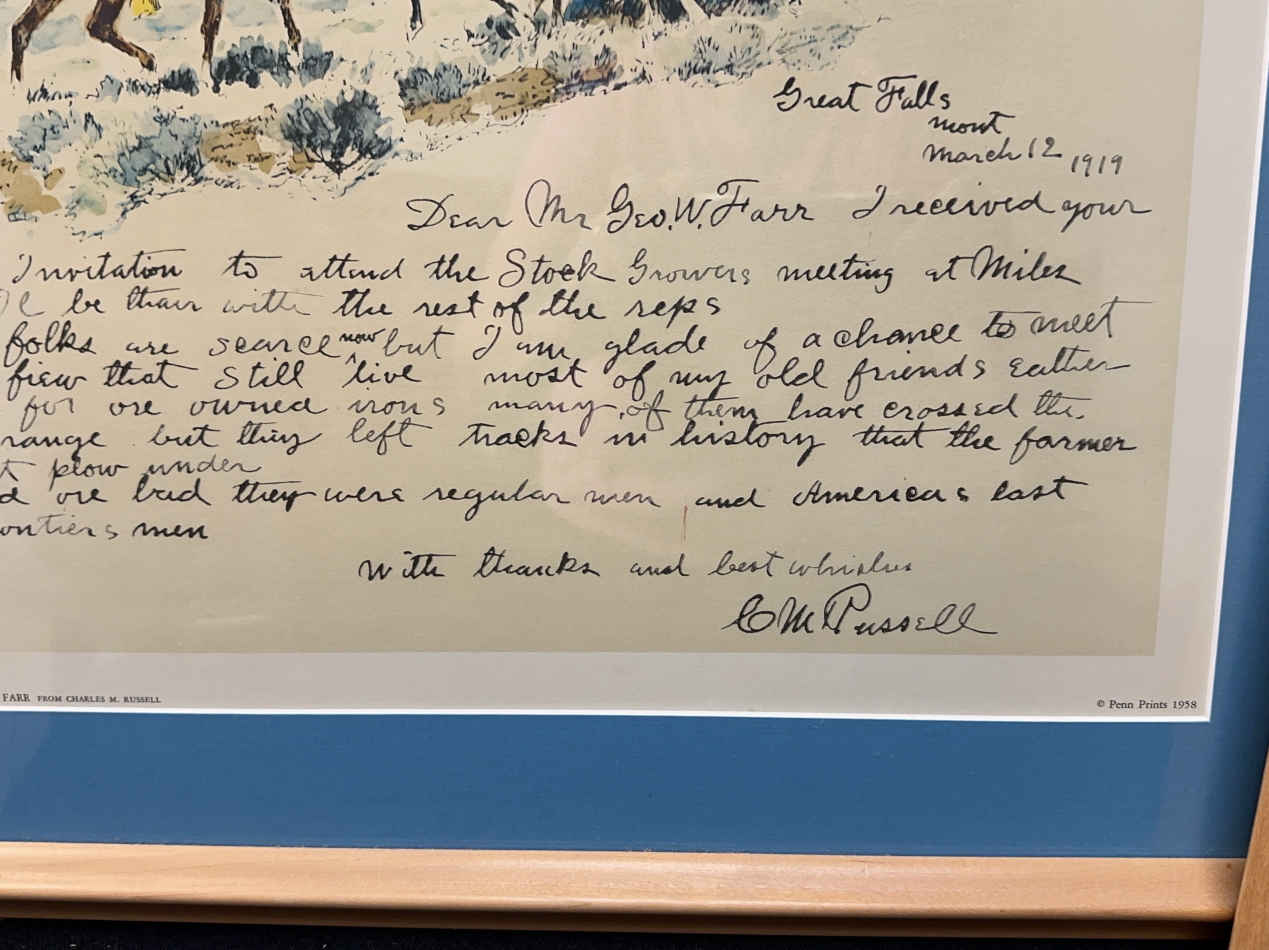 Great Falls
Mont
March 12 1919
Dear Mr Geo. W. Farr I received your
Invitation to attend the Stock Growers meeting at Miles
be thair with the rest of the reps
folks are scarce now but I am glade of a chance to meet
fiew that still live most of my old friends eather
for ore owned irons many of them have crossed the
range but they left tracks in history that the farmer
plow under
ore bad they were regular men and Americas last
ontiers men
With thanks and best whishes
C M Russell
FARR FROM CHARLES M. RUSSELL
© Penn Prints 1958